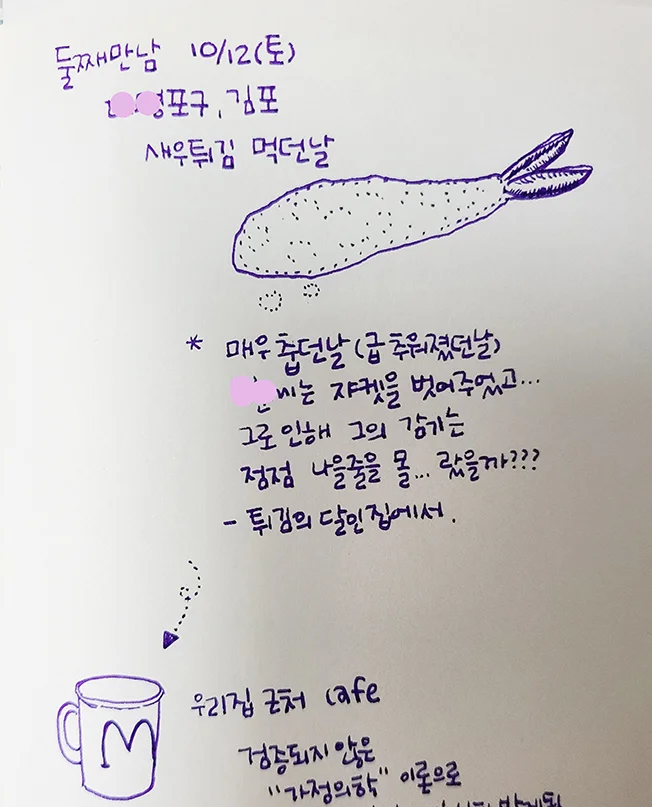 둘째만남 10/12(토)
포구, 김포
새우튀김 먹던날
* 매우 춥던날 (급 추워졌던날)
씨는 쟈켓을 벗어주었고...
그로인해 그의 감기는
정점 나을줄을 몰... 랐을까???
- 튀김의 달인집에서.
M
우리집 근처 cafe
검증되지 않은
"가정의학" 이론으로